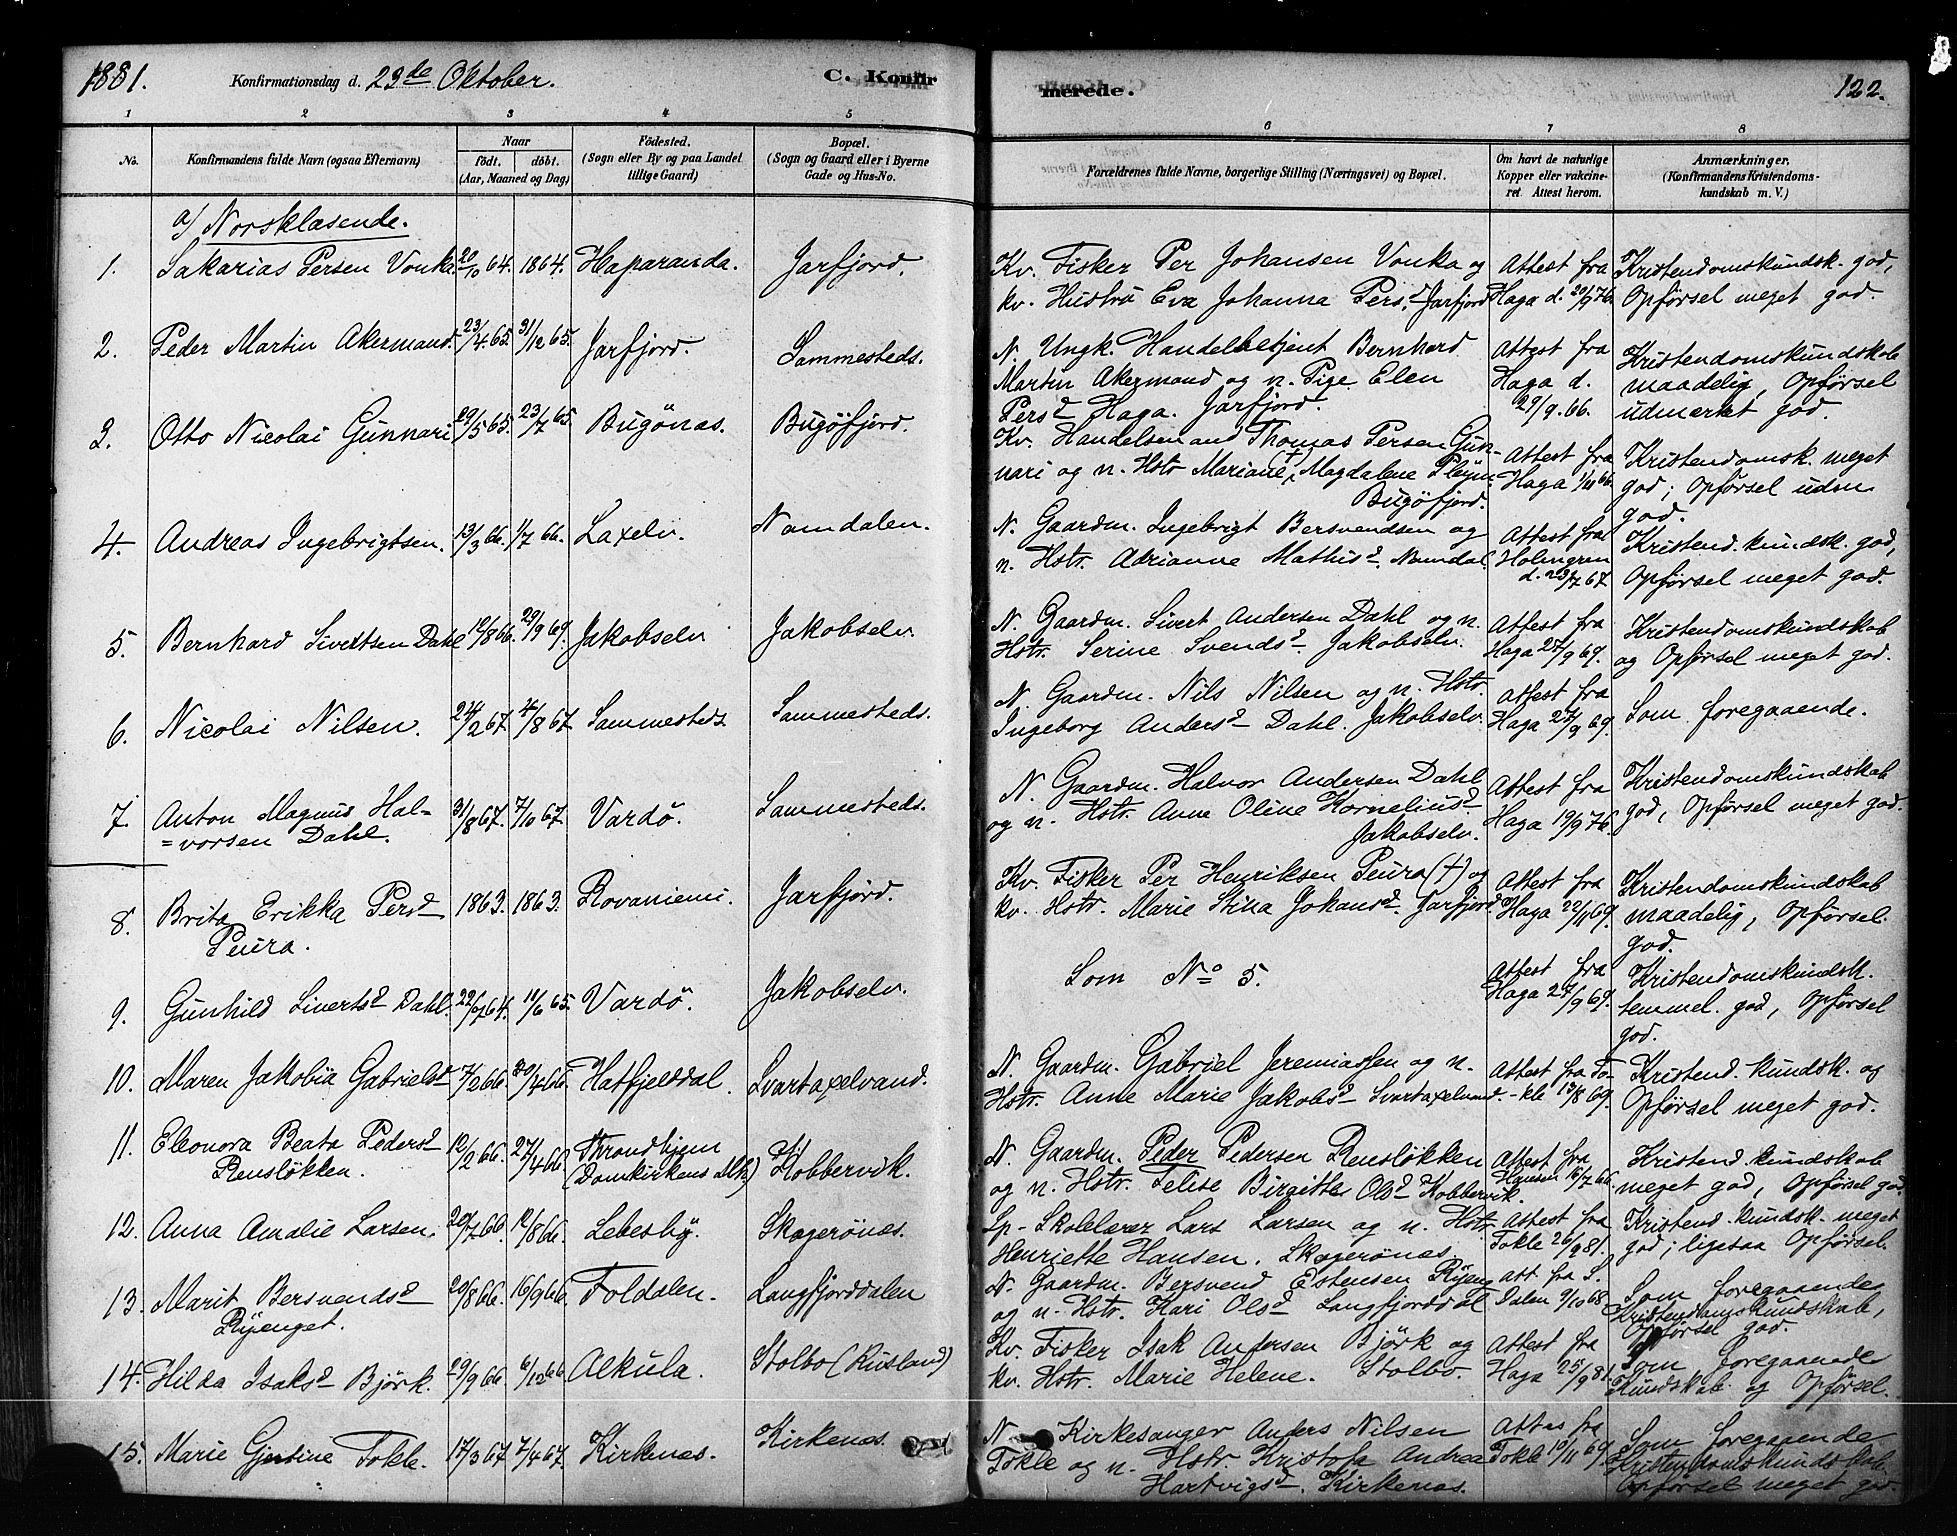 1881. Konfirmationsdag d. 23de Oktober. C. Konfir
merede. 122.
1 2 3 4 5 6 7 8
No. Konfirmandens fulde Navn (ogsaa Efternavn) Naar født. døbt. (Aar, Maaned og Dag) Fødested. (Sogn eller By og paa Landet tillige Gaard) Bopæl. (Sogn og Gaard eller i Byerne Gade og Hus-No. Forældrenes fulde Navne, borgerlige Stilling (Næringsvei) og Bopæl. Om havt de naturlige Kopper eller vakcineret. Attest herom. Anmærkninger. (Konfirmandens Kristendomskundskab m. V.)
a/ Norsklæsende.
1. Sakarias Persen Vonka. 20/10 64. 1864. Haparanda. Jarfjord. Kv. Fisker Per Johansen Vonka og Attest fra Kristendomskundsk. god,
kv. Hustru Eva Johanna Persd. Jarfjord Haga d. 20/9 76. Opførsel meget god.
2. Peder Martin Akermand. 23/4 65. 31/12 65. Jarfjord. Sammesteds. N. Ungk. Handelsbetjent Bernhard Attest fra Kristendomskundskab
Martin Akermand og n. Pige Elen Haga d. maadelig, Opførsel
Persd Haga. Jarfjord. 29/9. 66. udmærket god.
3. Otto Nicolai Gunnari 29/5 65. 23/7 65. Bugönæs. Bugöfjord. Kv. Handelsmand Thomas Persen Gun- Attest fra Kristendomsk. meget
nari og n. Hstr Mariane (+) Magdalene Pleym Haga 1/11 66. god; Opførsel uden
Bugöfjord. god.
4. Andreas Ingebrigtsen. 13/3 66. 1/7 66. Laxelv. Namdalen. N. Gaardm. Ingebrigt Bersvendsen og Attest fra Kristend. kundsk. god,
n. Hstr. Adrianne Mathisd. Namdal. Holmgren d. 23/7 67. Opførsel meget god.
5. Bernhard Sivertsen Dahl 12/8 66. 29/9 69. Jakobselv. Jakobselv. N. Gaardm. Sivert Andersen Dahl og n. Attest fra Kristendomskundskab
Hstr. Serine Svendsd. Jakobselv. Haga 27/9 69. og Opførsel meget god.
6. Nicolai Nilsen. 24/2 67. 4/8 67. Sammesteds. Sammesteds. N. Gaardm. Nils Nilsen og n. Hstr. Attest fra Som foregaaende.
Ingeborg Andersd Dahl. Jakobselv. Haga 27/9 69.
7. Anton Magnus Hal= 31/8 67. 7/10 67. Vardö. Sammesteds. N. Gaardm. Halvor Andersen Dahl Attest fra Kristendomskundskab
=vorsen Dahl. og n. Hstr. Anne Oline Korneliusd Haga 19/9 76. god, Opførsel meget god.
Jakobselv.
8. Brita Erikka Persd 1863. 1863. Rovaniemi. Jarfjord. Kv. Fisker Per Henriksen Peura (+) og Attest fra Kristendomskundskab
Peura. kv. Hstr. Marie Stina Johansd. Jarfjord. Haga 22/11 69. maadelig, Opførsel
god.
9. Gunhild Sivertsd Dahl. 64. 11/6 65. Vardö. Jakobselv. Som No 5. Attest fra Kristendomskundsk.
Haga 27/9 69. temmel. god, Opførsel
god.
10. Maren Jakobia Gabrielsd 7/2 66. 20/4 66. Hatfjelddal. Svartaxelvand. N. Gaardm. Gabriel Jeremiassen og n. Attest fra Fo- Kristend. kundsk. og
Hstr. Anne Marie Jakobsd Svartaxelvand. -kle 13/8 69. Opførsel meget god.
11. Eleonora Beata Pedersd 12/2 66. 27/4 66. Throndhjem Kobbervik. N. Gaardm. Peder Pedersen Rensløkken Attest fra Kristend. kundskab
Rensløkken. (Domkirkens og n. Hstr. Felise Birgitte Olsd Kobbervik. Hansen 16/7 66. meget god, Opførsel god.
12. Anna Amalie Larsen. 20/7 66. 12/8 66. Lebesby. Skogerönæs. Lp- Skolelærer Lars Larsen og n. Hstr Attest fra Kristend. kundsk. meget
Henriette Hansen. Skogerönæs. Fokle 26/9 81. god; ligesaa Opførsel.
13. Marit Bersvendsd 20/8 66. 16/9 66. Foldalen. Langfjorddalen N. Gaardm. Bersvend Estensen Ryeng Att. fra S. Som foregaaende
Ryenget. og n. Hstr. Kari Olsd Langfjorddal Dalen 9/10 68. Kristendomskundskab,
Opførsel god.
14. Hilda Isaksd Björk. 29/9 66. 6/12 66. Alkula. Stolbo (Rusland) Kv. Fisker Isak Andersen Björk og Attest fra Som foregaaende
kv. Hstr. Marie Helene. Stolbo. Haga 25/9 81. Kundskab og Opførsel.
15. Marie Gjertine Fokle. 17/3 67. 7/4 67. Kirkenæs. Kirkenæs. N. Kirkesanger Anders Nilsen Attes fra Som foregaaende
Fokle og n. Hstr Kristofa Andrea Fokle 10/11 69. Kristendomskundskab
Hartvigsd. Kirkenæs. Opførsel meget god.